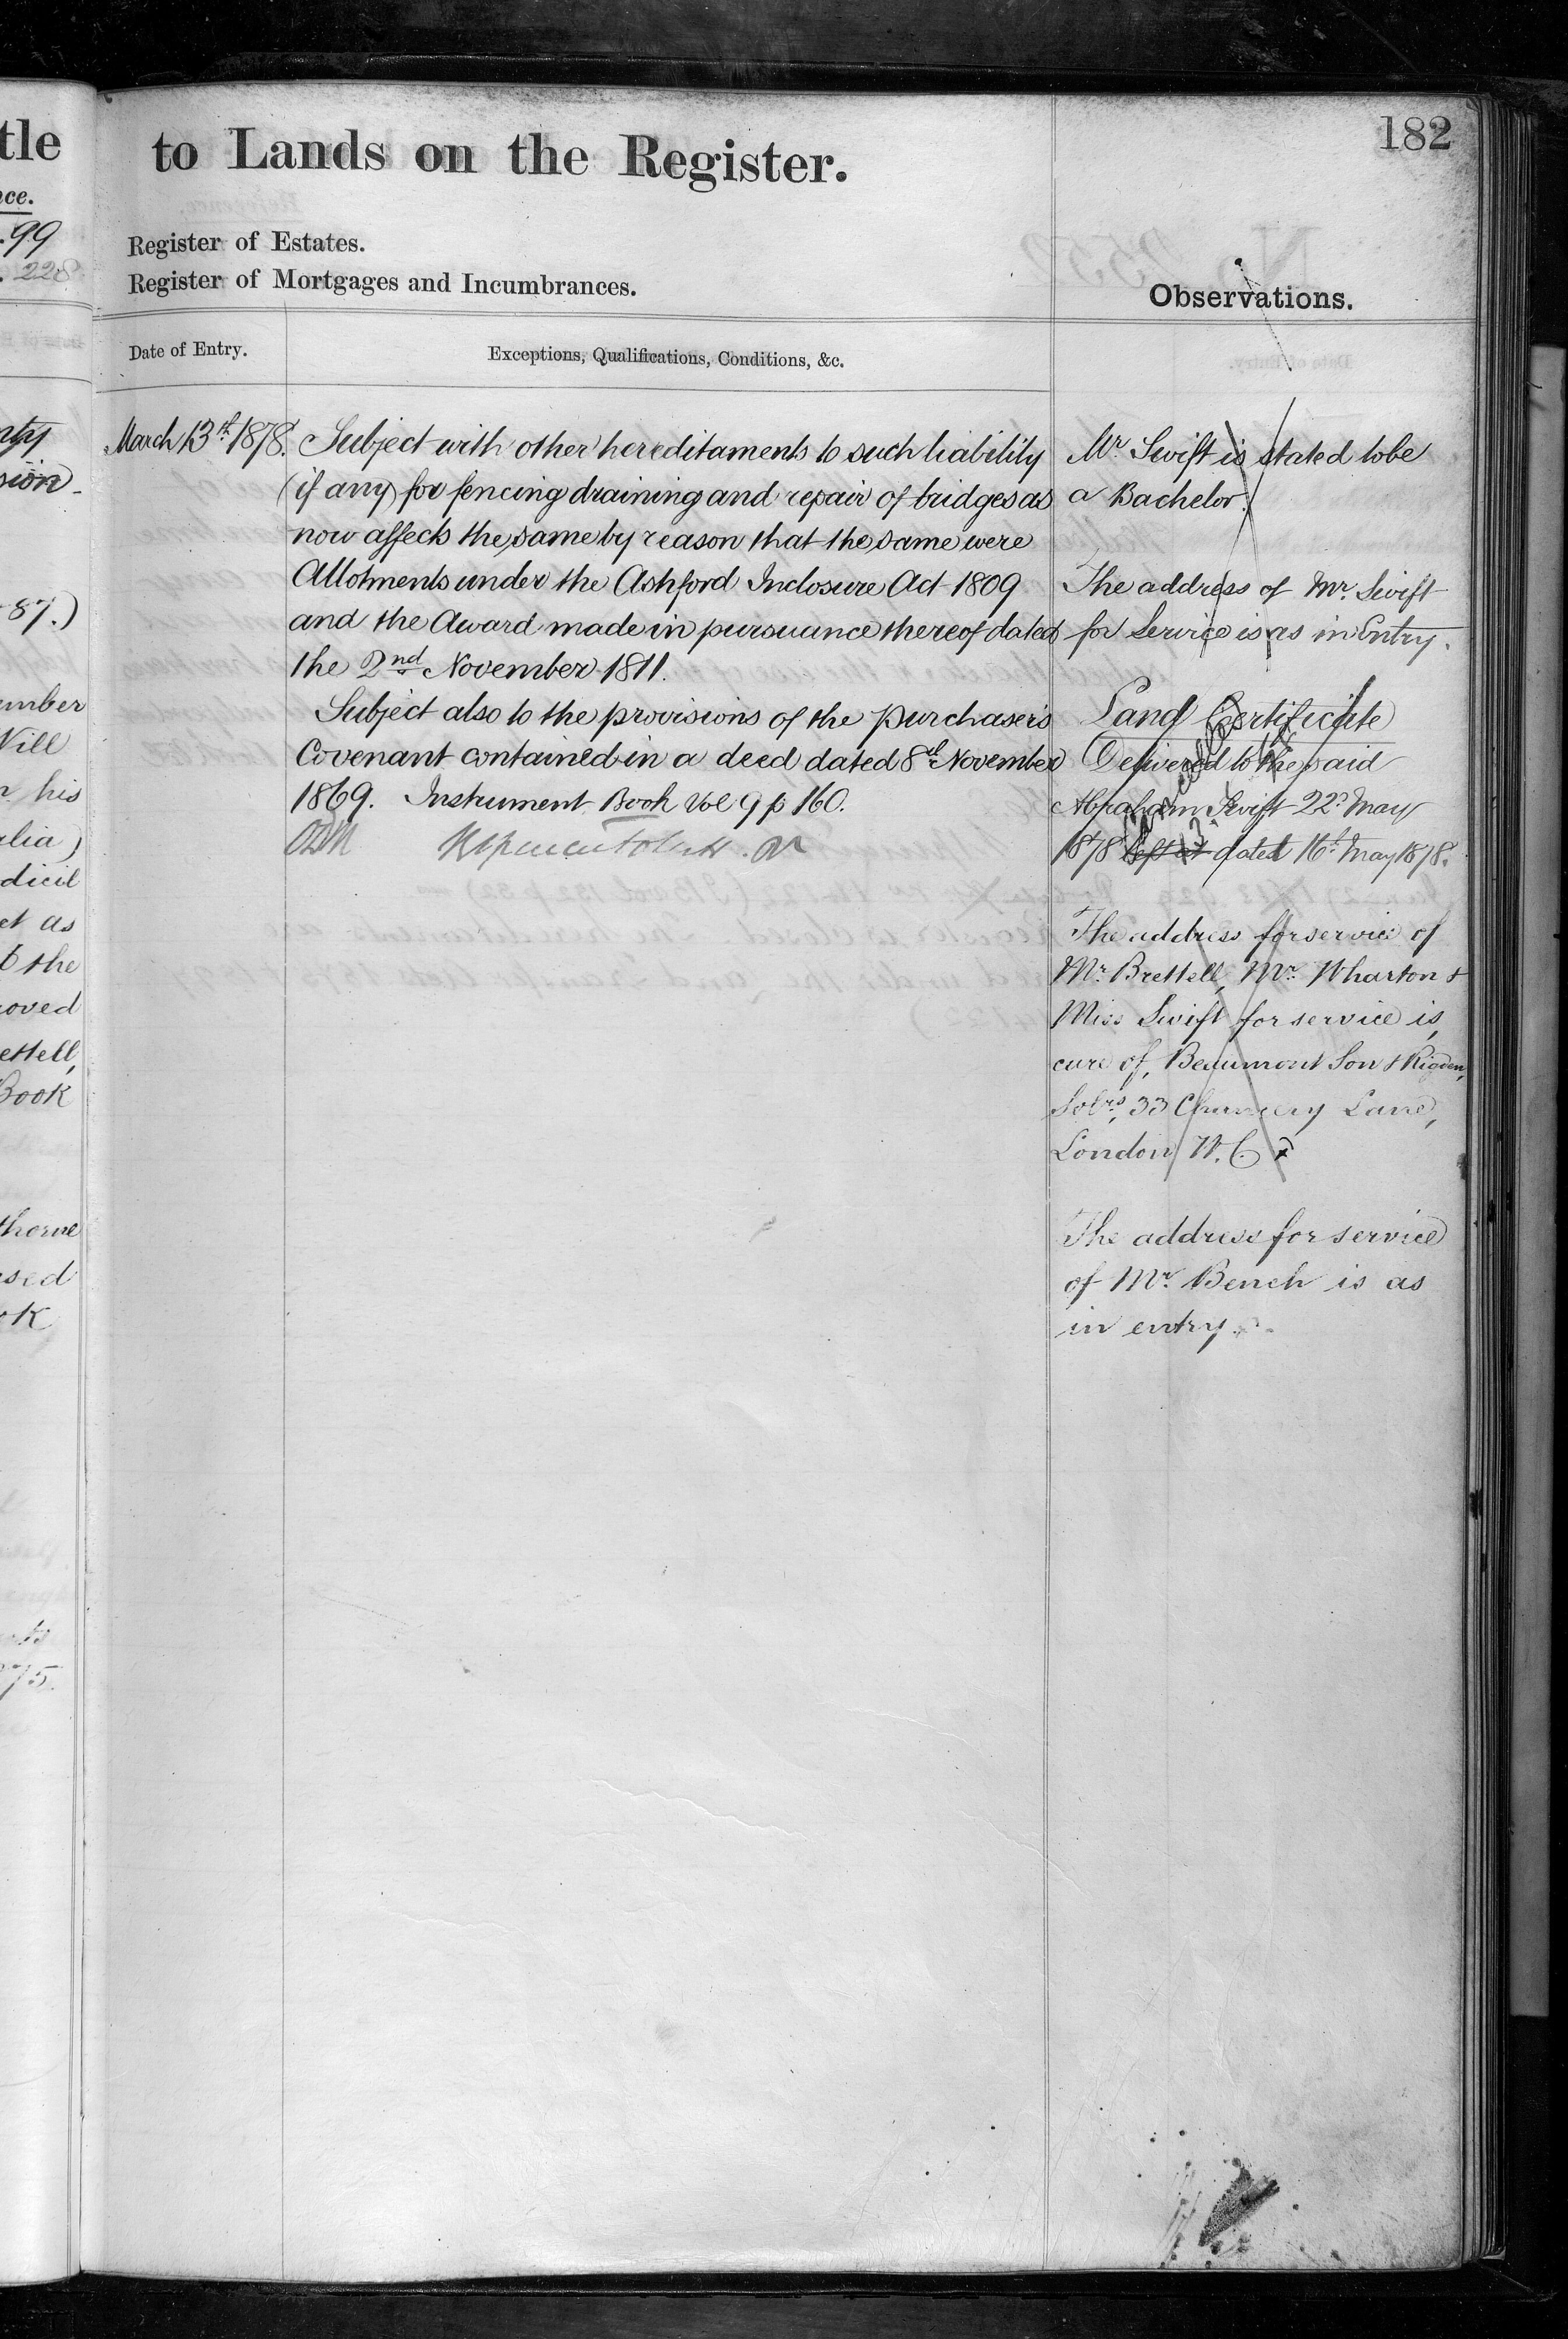 182
to Lands on the Register.
Register of Estates.
Register of Mortgages and Incumbrances.
Observations.
Date of Entry.
Exceptions, Qualifications, Conditions, &c.
March 13th 1878.
Subject with other hereditaments to such liability
(if any) for fencing draining and repair of bridges as
now affects the same by reason that the same were
Allotments under the Ashford Inclosure Act 1809
and the Award made in pursuance thereof dated
the 2nd November 1811.
Subject also to the provisions of the purchaser's
Covenant contained in a deed dated 8th November
1869. Instrument Book Vol 9 p 160.
Mr. Swift is stated to be
a Bachelor.
The address of Mr. Swift
for Service is as in Entry.
Land Certificate
Delivered to the said
Abraham Swift 22d May
1878 dated 16th May 1878.
The address for service of
Mr. Brettell, Mr. Wharton &
Miss Swift for service is,
care of, Beaumont Son & Rigden,
Solrs, 33 Chancery Lane,
London W.C.
The address for service
of Mr. Bench is as
in entry.
tle
ce.
.99
. 228
nty
sion
87.)
ember
Will
his
alia)
dicil
et as
the
oved
ettell,
Book
thorne
sed
ok
75.